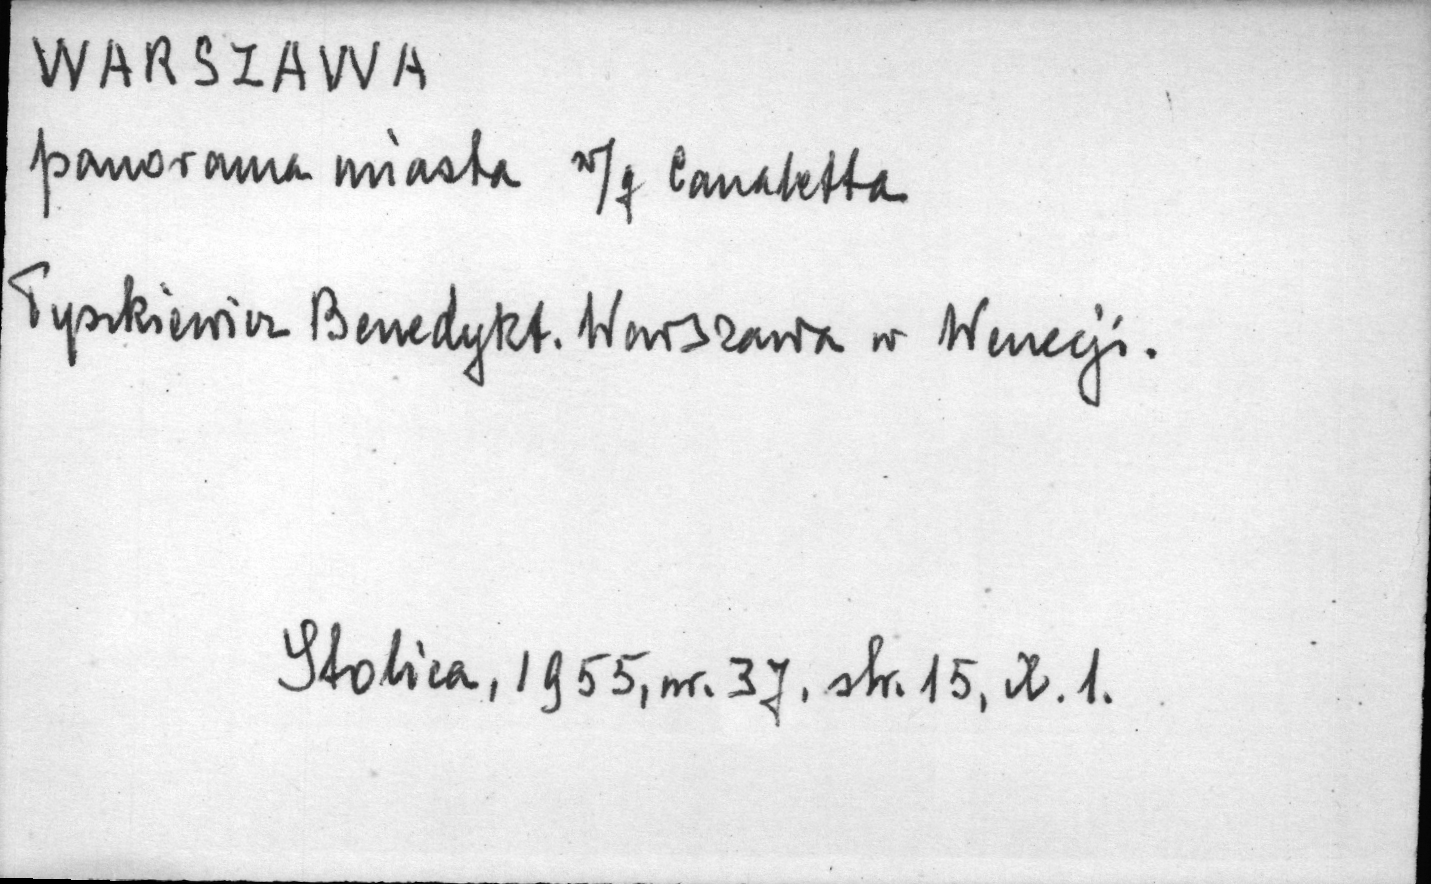 WARSZAWA
panorama miasta w/g Canaletta
Tyszkiewicz Benedykt. Warszawa w Wenecji.
Stolica, 1955, nr. 37, str. 15, il. 1.